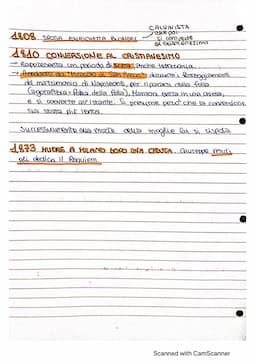 CALVINISTA
che poi
si converte
al cristianesimo
1808 SPOSA ENRICHETTA BLONDEL
1810 CONVERSIONE AL CRISTIANESIMO
- Rappresenta un periodo di svolta, anche letteraria.
- Aneddoto del "miracolo di San Rocco": durante i festeggiamenti
del matrimonio di Napoleone, per ripararsi dalla folla
(agorafobia: paura della folla), Manzoni entra in una chiesa,
e si converte all'istante. Si presume però che la conversione
sia stata più lenta.
Successivamente alla morte della moglie lui si risposa
1873 MUORE A MILANO DOPO UNA CADUTA. Giuseppe Verdi
gli dedica il Requiem
Scanned with CamScanner